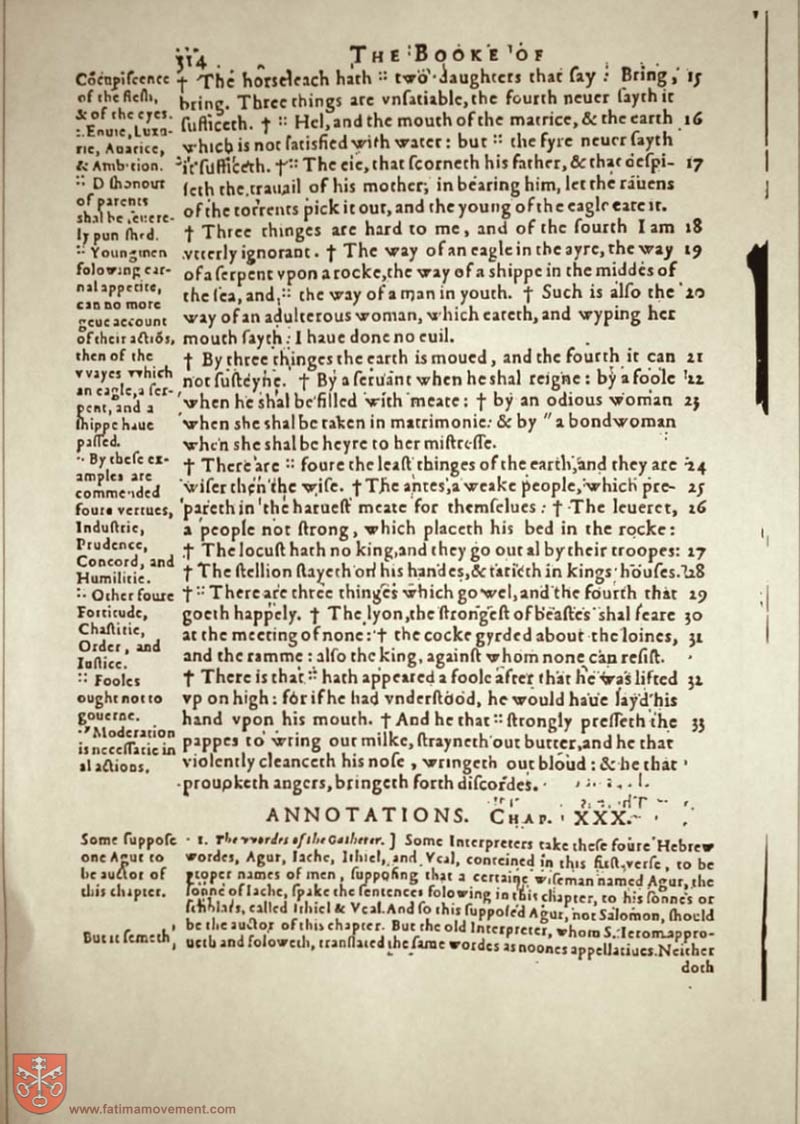 314 THE BOOKE OF
Cócupiscence
of the flesh,
& of the eyes.
:. Enuie, Luxu-
rie, Auarice,
& Ambition.
:: Dishonour
of parents
shal be seuere-
ly punished.
:: Youngmen
folowing car-
nal appetite,
can no more
geue account
of their actiōs,
then of the
vvayes vvhich
an eagle, a ser-
pent, and a
shippe haue
passed.
By these ex-
amples are
commended
foure vertues,
Industrie,
Prudence,
Concord, and
Humilitie.
:: Other foure
Fortitude,
Chastitie,
Order, and
Iustice.
:: Fooles
ought not to
gouerne.
Moderation
is necessarie in
al actions.
† The horseleach hath :: two daughters that say: Bring, 15
bring. Three things are vnsatiable, the fourth neuer sayth it
sufficeth. † :: Hel, and the mouth of the matrice, & the earth 16
which is not satisfied with water: but :: the fyre neuer sayth
it sufficeth. † :: The eie, that scorneth his father, & that despi- 17
seth the trauail of his mother, in bearing him, let the rauens
of the torrents pick it out, and the young of the eagle eate it.
† Three thinges are hard to me, and of the fourth I am 18
vtterly ignorant. † The way of an eagle in the ayre, the way 19
of a serpent vpon a rocke, the way of a shippe in the middes of
the sea, and :: the way of a man in youth. † Such is also the 20
way of an adulterous woman, which eateth, and wyping her
mouth sayth: I haue done no euil.
† By three thinges the earth is moued, and the fourth it can 21
not susteyne. † By a seruant when he shal reigne: by a foole 22
when he shal be filled with meate: † by an odious woman 23
when she shal be taken in matrimonie: & by " a bondwoman
when she shal be heyre to her mistresse.
† There are :: foure the least thinges of the earth, and they are 24
wiser then the wise. † The antes, a weake people, which pre- 25
pareth in the haruest meate for themselues: † The leueret, 26
a people not strong, which placeth his bed in the rocke:
† The locust hath no king, and they go out al by their troopes: 27
† The stellion stayeth on his handes, & tarieth in kings houses. 28
† :: There are three thinges which go wel, and the fourth that 29
goeth happely. † The lyon, the strongest of beastes shal feare 30
at the meeting of none: † the cocke gyrded about the loines, 31
and the ramme: also the king, against whom none can resist.
† There is that :: hath appeared a foole after that he was lifted 32
vp on high: for if he had vnderstood, he would haue layd his
hand vpon his mouth. † And he that :: strongly presseth the 33
pappes to wring out milke, strayneth out butter, and he that
violently cleanceth his nose, wringeth out bloud: & he that
prouoketh angers, bringeth forth discordes.
ANNOTATIONS. CHAP. XXX.
Some suppose
one Agur to
be auctor of
this chapter.
But it semeth,
1. The vvordes of the Gatherer. ] Some Interpreters take these foure Hebrew
wordes, Agur, Iache, Ithiel, and Vcal, conteined in this first verse, to be
proper names of men, supposing that a certaine wiseman named Agur, the
sonne of Iache, spake the sentences folowing in this chapter, to his sonnes or
schollars, called Ithiel & Vcal. And so this supposed Agur, not Salomon, should
be the auctor of this chapter. But the old Interpreter, whom S. Ierom appro-
ueth and foloweth, translated the same wordes as noones appellatiues. Neither
doth
www.fatimamovement.com